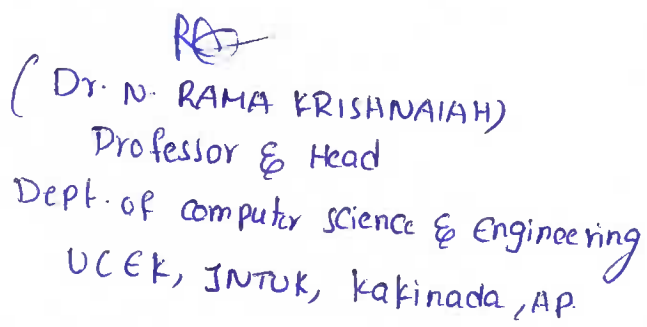 (Dr. N. RAMA KRISHNAIAH)
Professor & Head
Dept. of computer science & Engineering
UCEK, JNTUK, Kakinada, AP.